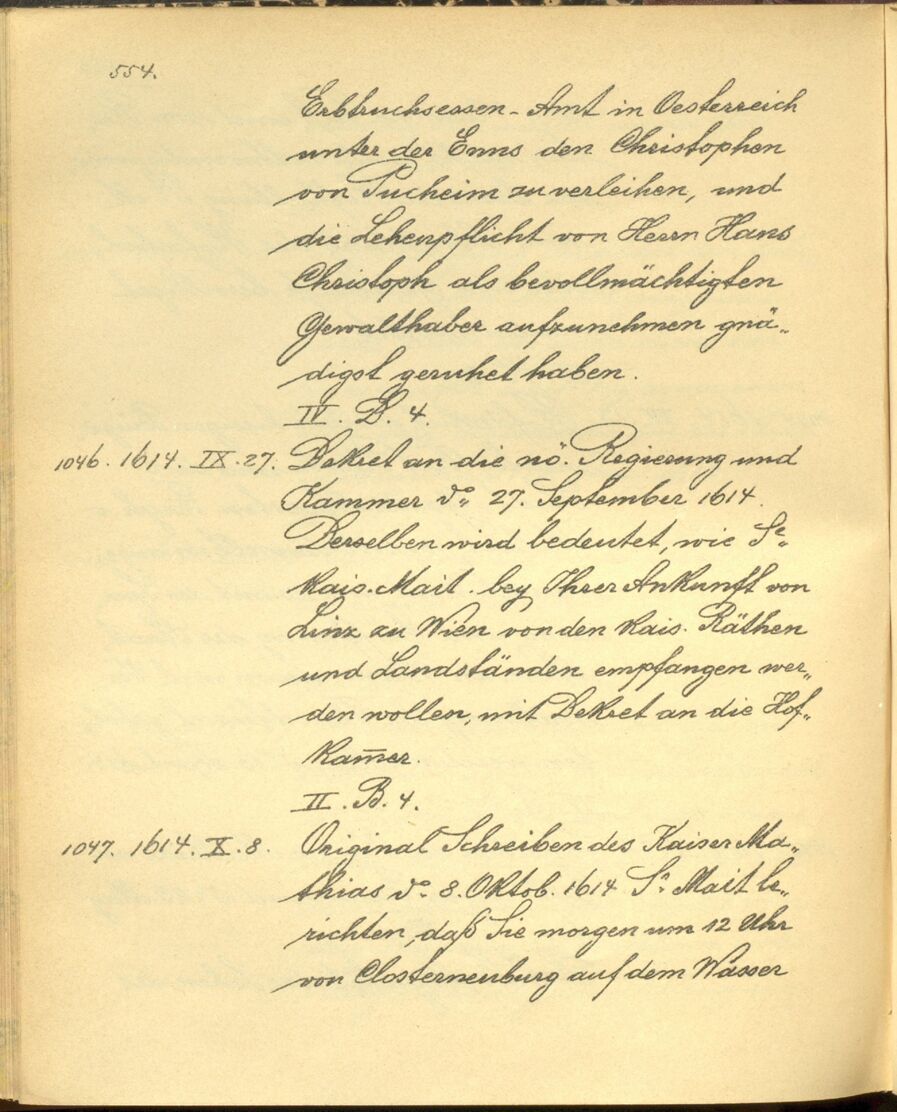 554.
Erbtruchsessen-Amt in Oesterreich
unter der Enns den Christophen
von Pucheim zu verleihen, und
die Lehenpflicht von Herrn Hans
Christoph als bevollmächtigten
Gewalthaber aufzunehmen gnä„
digst geruhet haben.
IV. D. 4.
1046. 1614. IX. 27. Dekret an die nö. Regierung und
Kammer do. 27. September 1614.
Derselben wird bedeutet, wie Se.
Kais. Mait. bey Ihrer Ankunft von
Linz zu Wien von den Kais. Räthen
und Landständen empfangen wer„
den wollen, mit Dekret an die Hof„
kam̄er.
II. B. 4.
1047. 1614. X. 8. Original Schreiben des Kaiser Ma„
thias do. 8. Oktob. 1614. Se. Mait be„
richten, daß Sie morgen um 12 Uhr
von Closterneuburg auf dem Wasser